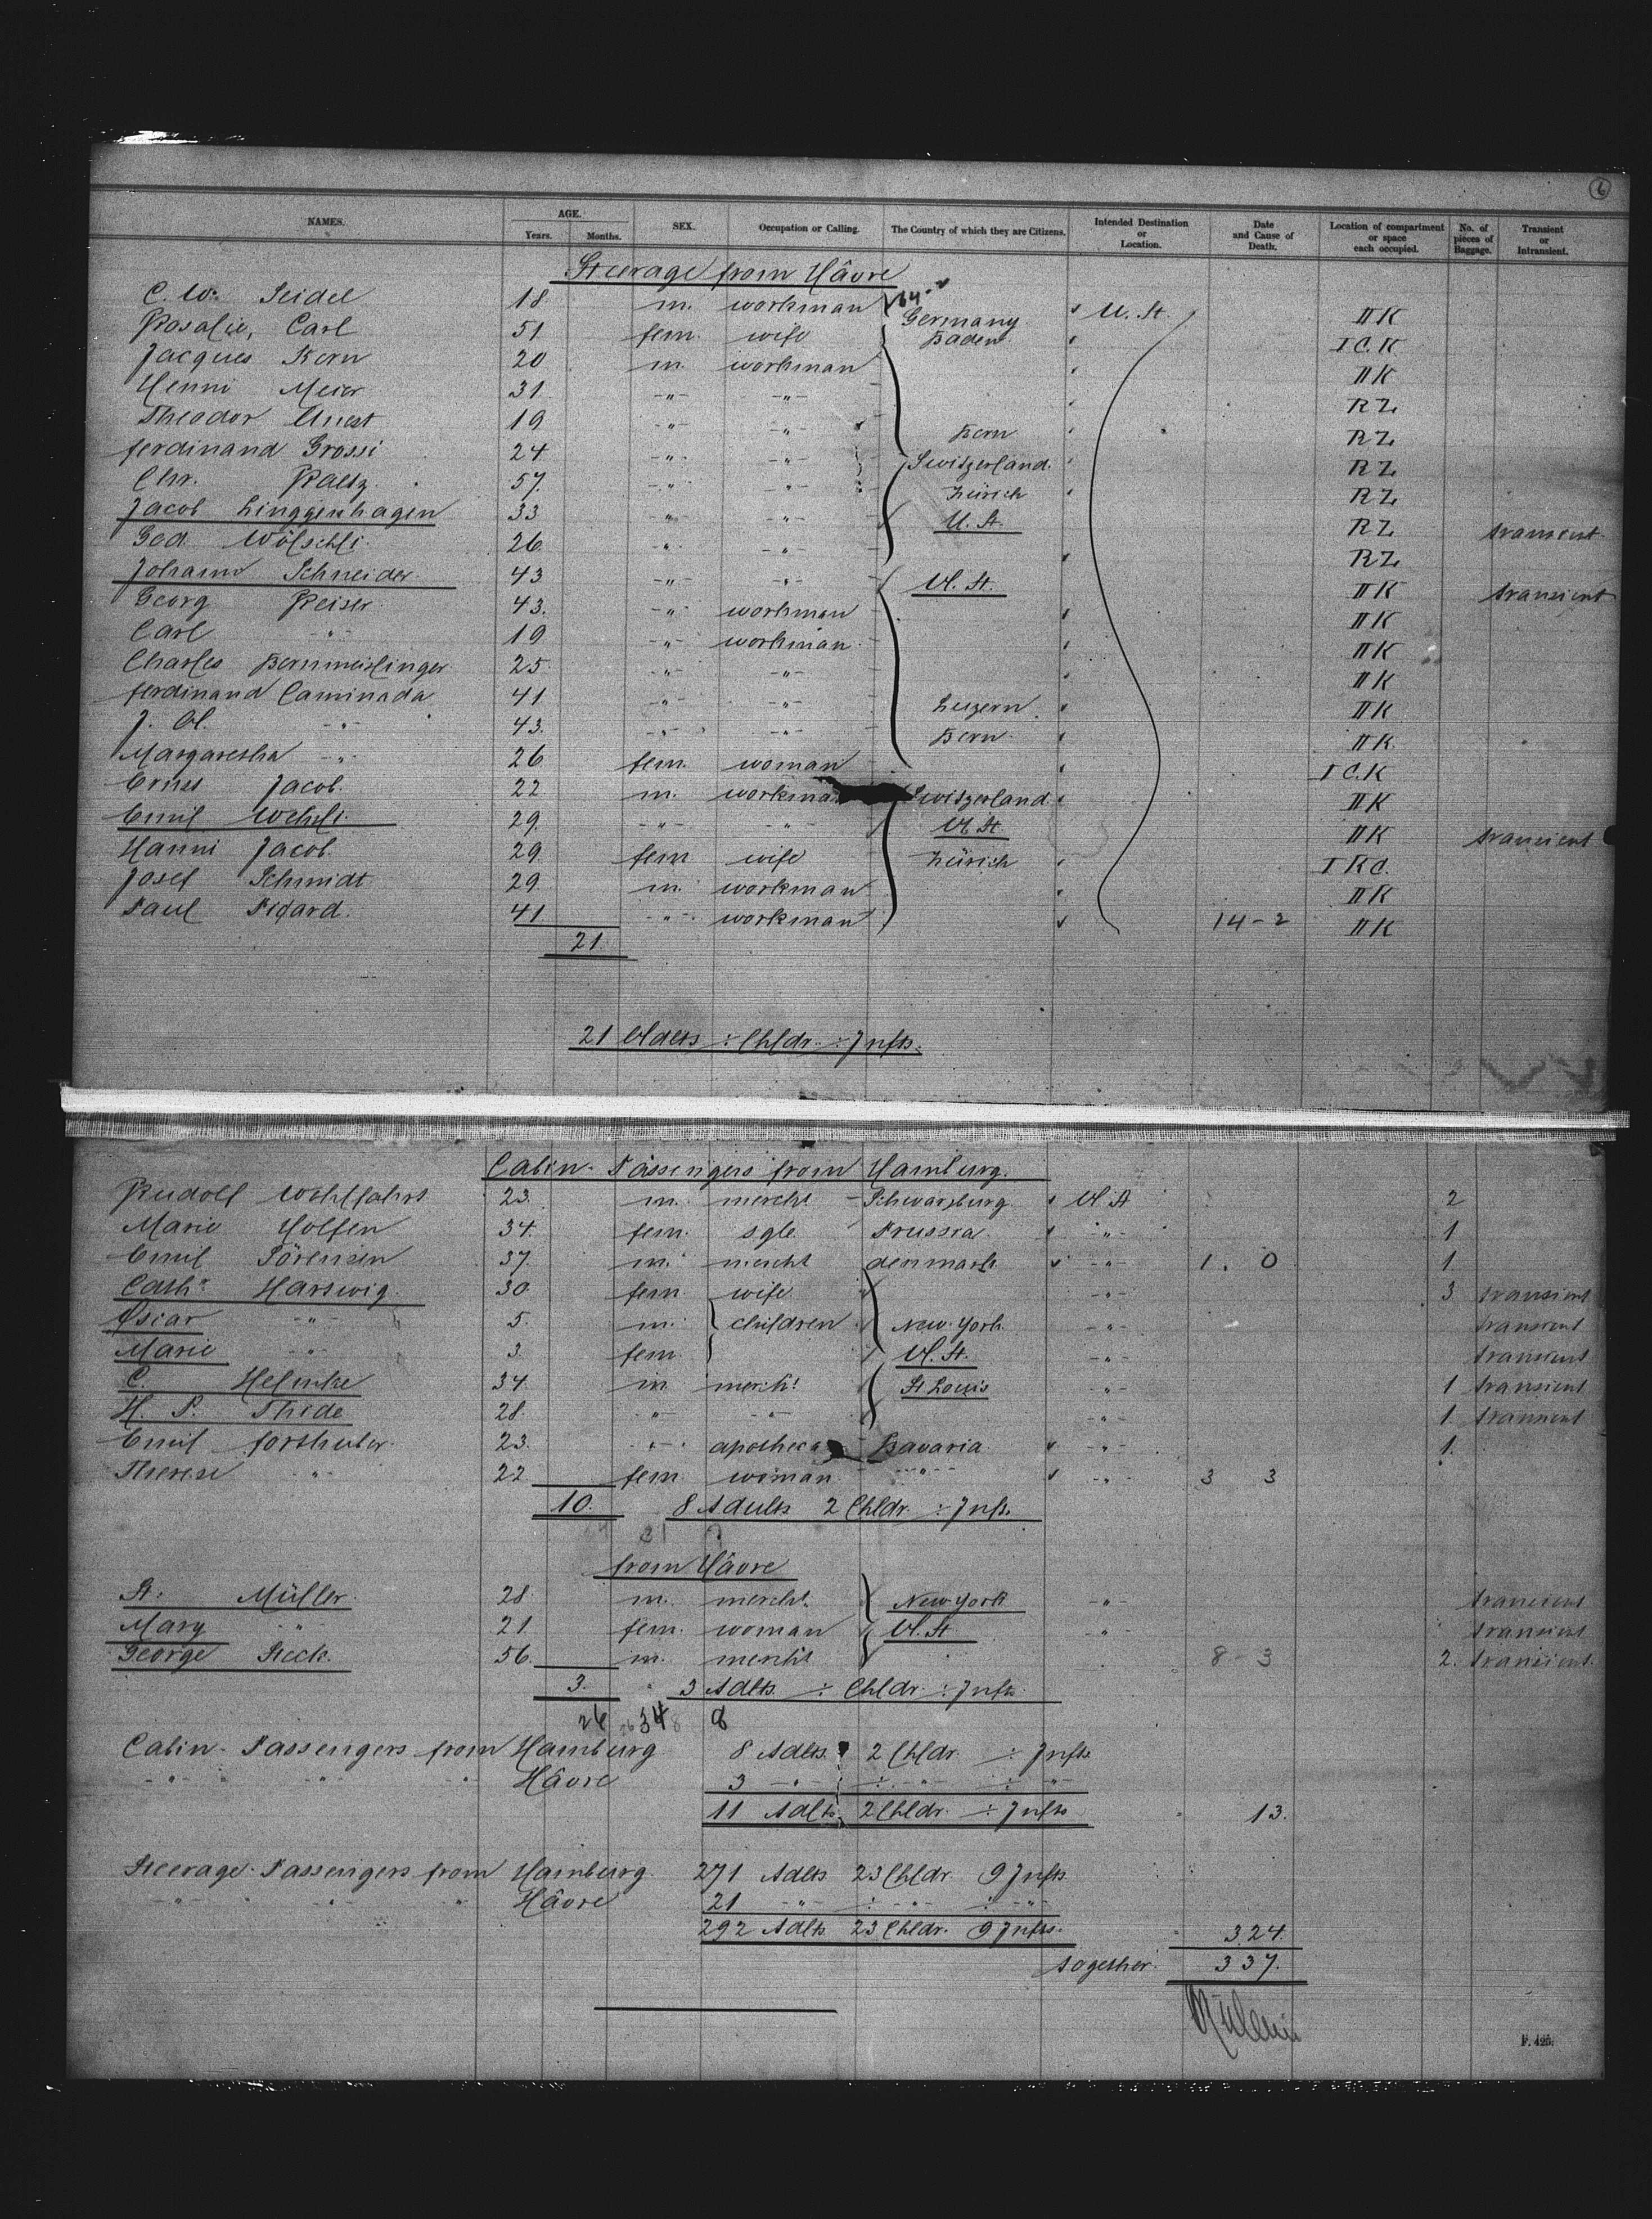 6
NAMES. AGE. Years. Months. SEX. Occupation or Calling. The Country of which they are Citizens. Intended Destination or Location. Date and Cause of Death. Location of compartment or space each occupied. No. of pieces of Baggage. Transient or Intransient.
Steerage from Hâvre
C. W. Seidel 18 m. workman Germany U. St. II K
Rosalie, Carl 51 fem. wife Baden I C. K
Jacques Kern 20 m. workman II K
Henni Meier 31 -"- -"- R Z
Theodor 19 -"- -"- Bern R Z
Ferdinand Grossi 24 -"- -"- Switzerland R Z
Chr. Raetz 57 -"- -"- Zürich R Z
Jacob Linggenhagen 33 -"- -"- U. St. R Z transient
God. Wölschli 26 -"- -"- R Z
Johann Schneider 43 -"- -"- U. St. II K transient
Georg Reiser 43. -"- workman II K
Carl -"- 19 -"- workman II K
Charles Bernmeilinger 25 -"- -"- II K
Ferdinand Caminada 41 -"- -"- Luzern II K
J. A. -"- 43. -"- -"- Bern II K
Margaretha -"- 26 fem. woman I C. K
Ernst Jacob. 22 m. workman Switzerland II K
Emil Wehrli. 29. -"- -"- U. St II K transient
Hanni Jacob. 29 fem wife Zürich I K C.
Josef Schmidt 29 m. workman II K
Paul Pigard. 41 -"- workman 14-2 II K
21.
21 Adlts ÷ Chldr. ÷ Infts.
Cabin-Passengers from Hamburg.
Rudolf Wohlfahrt 23. m. mercht Schwarzburg U. St 2
Marie Holsen 34. fem. sgle. Prussia -"- 1
Emil Sörensen 37. m. mercht denmark -"- 1. 0 1
Cath.a Hartwig. 30 fem. wife -"- 3 transient
Oscar -"- 5. m. children New-York. -"- transient
Marie -"- 3. fem. U. St. -"- transient
C. Helmke 34. m merch.t St Louis -"- 1 transient
H. P. Thede 28. -"- -"- -"- 1 transient
Emil Forthuber 23. -"- Bavaria -"- 1.
Therese -"- 22 fem woman -"- -"- 3 3
10. 8 Adults 2 Chldr. ÷ Infts.
from Hâvre
St. Müller. 28. m. mercht. New-York -"- transient
Mary -"- 21 fem. woman U. St -"- transient
George Beck. 56. m. mercht 8-3 2. transient.
3. 3 Adlts. ÷ Chldr. ÷ Infts.
26 34 8
Cabin-Passengers from Hamburg 8 Adlts. 2 Chldr. ÷ Infts.
-"- -"- -"- Hâvre 3 -"- ÷ -"- ÷ -"-
11 Adlts. 2 Chldr. ÷ Infts 13.
Steerage-Passengers from Hamburg. 271 Adlts 23 Chldr. 9 Infts
-"- -"- -"- Hâvre 21 -"- ÷ -"- ÷ -"-
292 Adlts 23 Chldr. 9 Infts. 324.
together. 337.
F. 425.